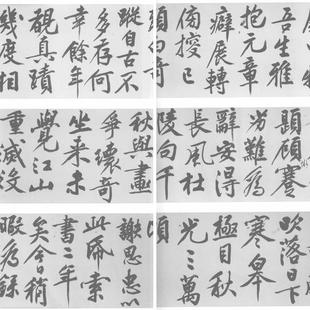 吾生雅
抱元章
癖展轉
傍搜已
頭白奇
蹤自古不
多存何
幸餘年
覩真蹟
幾度相
題顧謇
劣難為
辭安得
長風杜
陵句千
秋與畫
爭瓌奇
坐來未
覺江山
重滅沒
吹落日下
寒皋
極目秋
光三萬
頃
謝思忠以
此紙索
書二年
矣今日稍
暇為錄